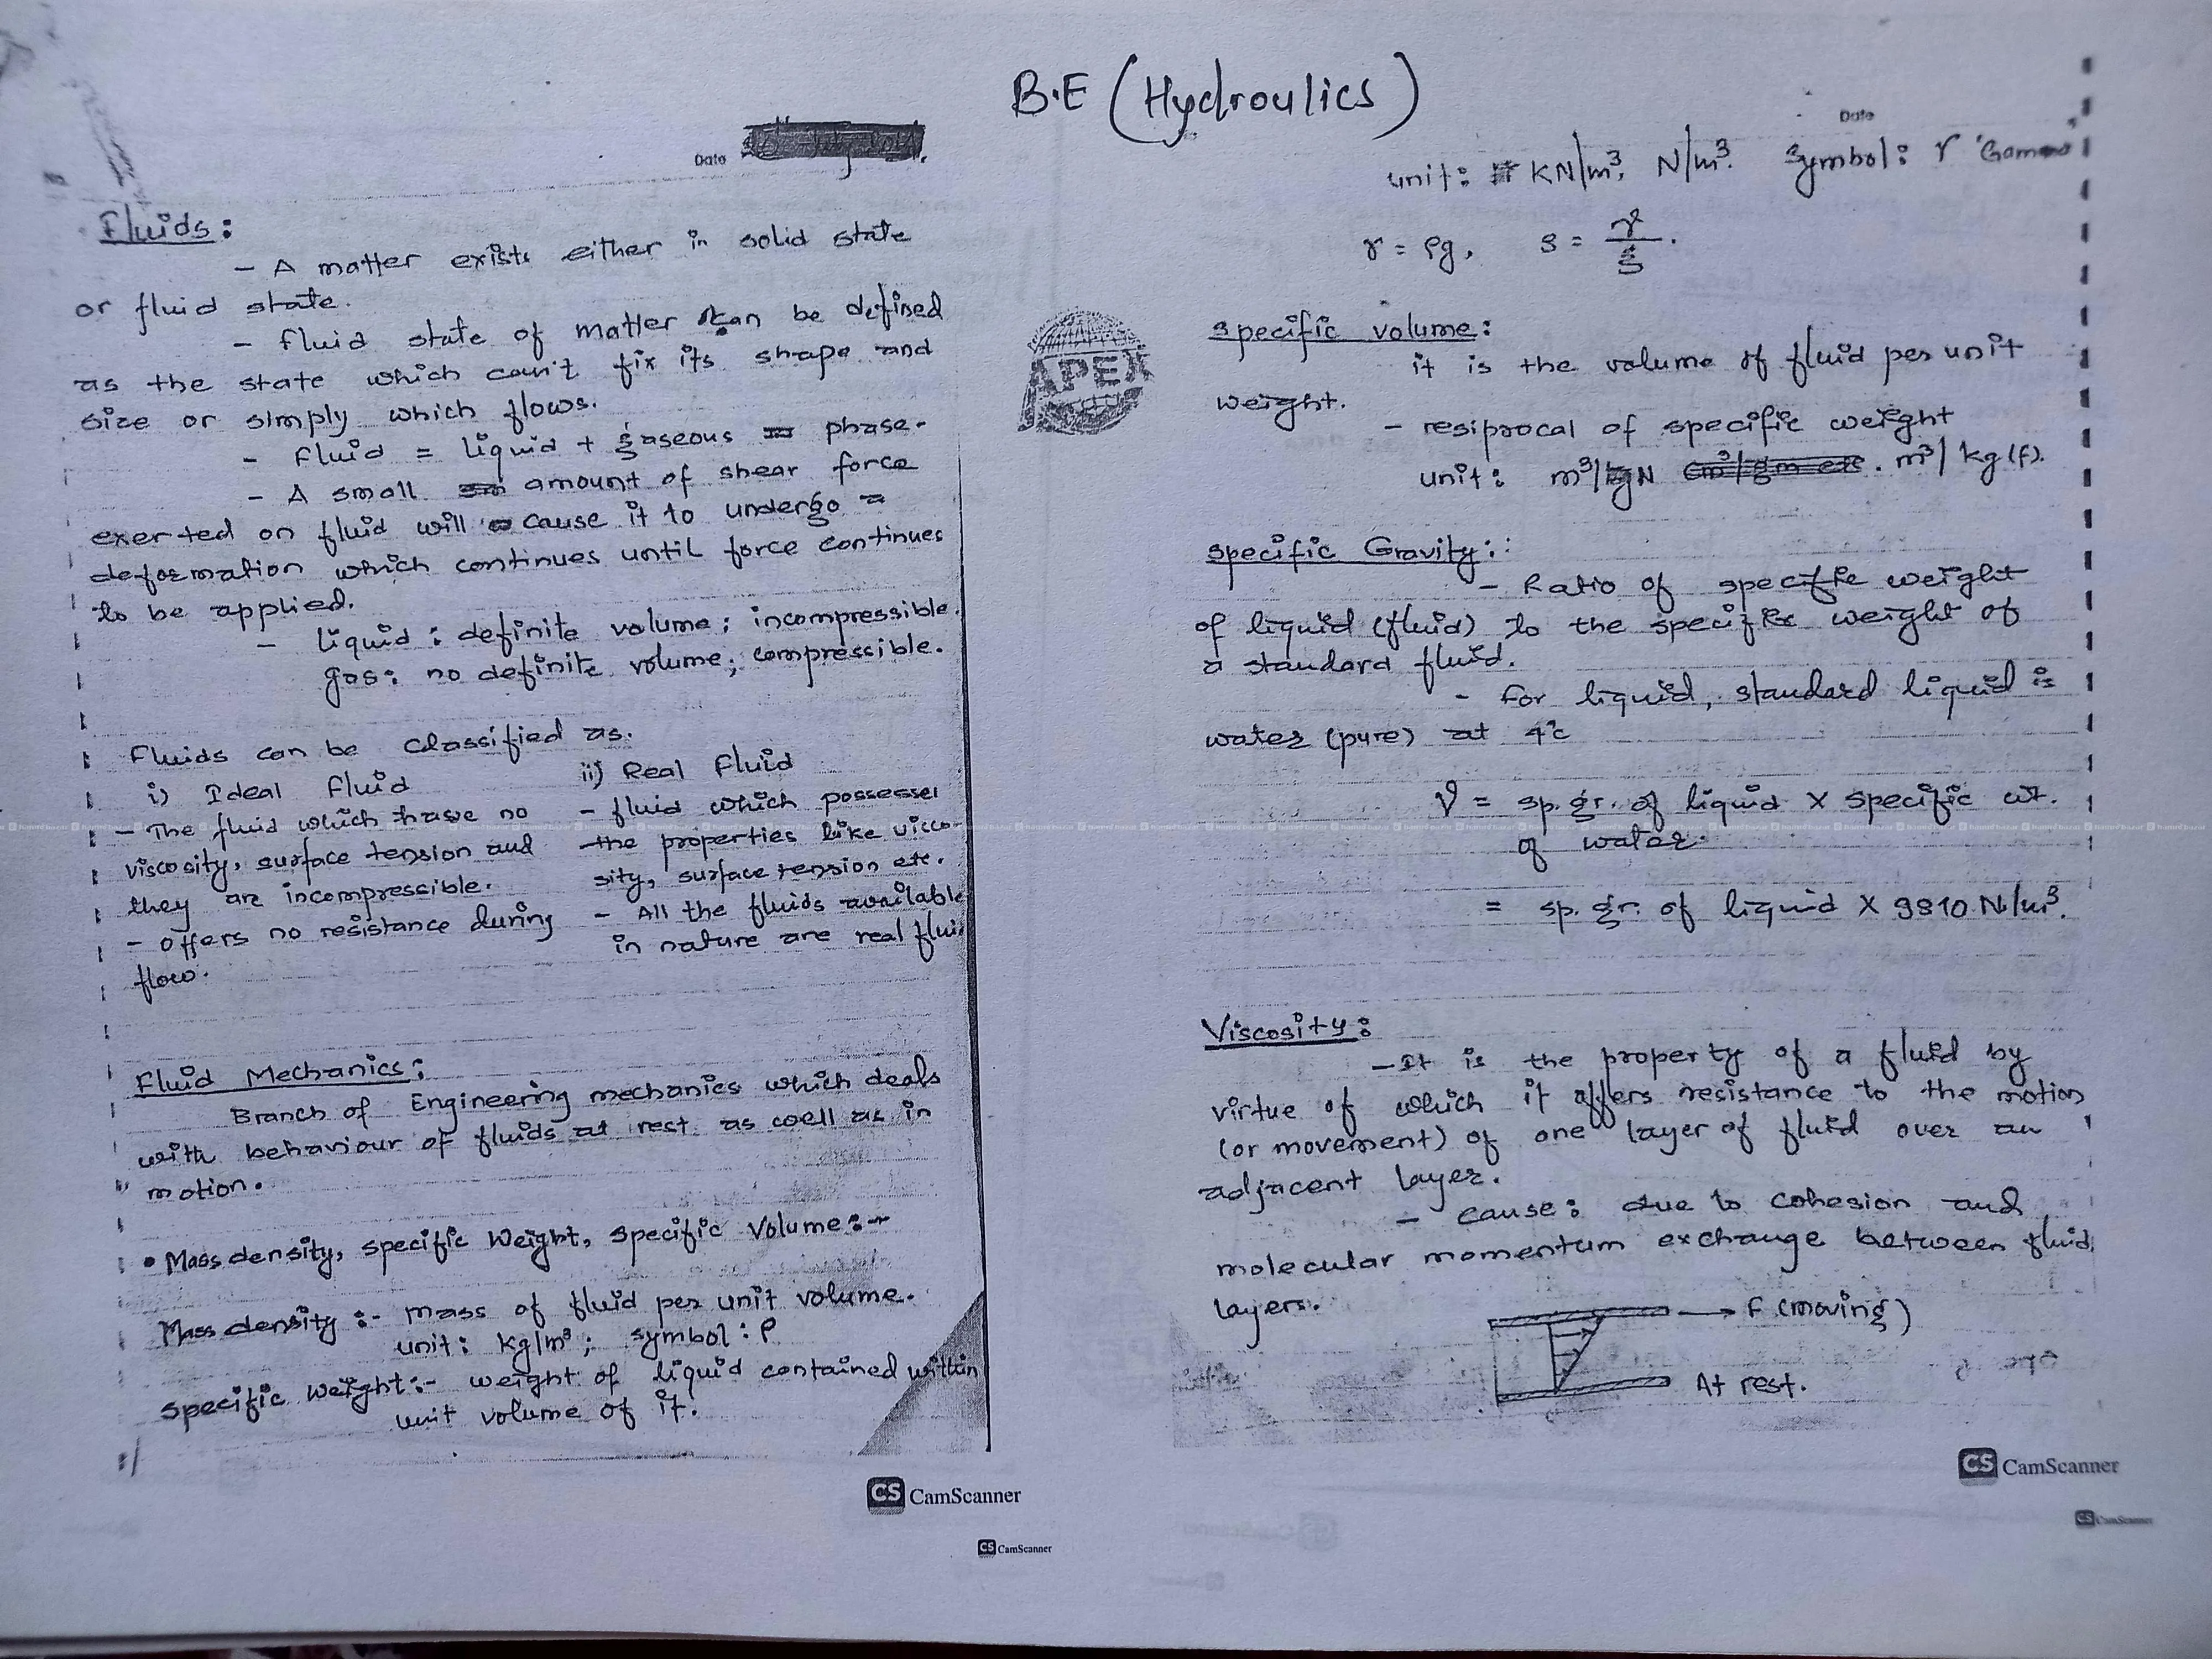 B.E (Hydroulics)
Date
Fluids:
- A matter exists either in solid state
or fluid state.
- fluid state of matter can be defined
as the state which can't fix its shape and
size or simply which flows.
- fluid = liquid + gaseous phase.
- A small amount of shear force
exerted on fluid will cause it to undergo a
deformation which continues until force continues
to be applied.
- liquid: definite volume; incompressible.
gas: no definite volume; compressible.
Fluids can be classified as.
i) Ideal fluid
- The fluid which have no
viscosity, surface tension and
they are incompressible.
- offers no resistance during
flow.
ii) Real Fluid
- fluid which possesses
the properties like visco-
sity, surface tension etc.
- All the fluids available
in nature are real flui
Fluid Mechanics:
Branch of Engineering mechanics which deals
with behaviour of fluids at rest as well as in
motion.
• Mass density, specific Weight, specific Volume:-
Mass density:- mass of fluid per unit volume.
unit: kg/m³; symbol: ρ
specific weight:- weight of liquid contained within
unit volume of it.
CS CamScanner
CS CamScanner
Date
unit: KN/m³, N/m³. Symbol: γ 'Gamma'
γ = ρg, ρ = γ/g.
APEX
specific volume:
it is the volume of fluid per unit
weight.
- resiprocal of specific weight
unit: m³/N . m³/kg(f).
specific Gravity:
- Ratio of specific weight
of liquid (fluid) to the specific weight of
a standard fluid.
- for liquid, standard liquid is
water (pure) at 4°c
γ = sp.gr. of liquid X specific wt.
of water.
= sp.gr. of liquid X 9810 N/m³.
Viscosity:
- It is the property of a fluid by
virtue of which it offers resistance to the motion
(or movement) of one layer of fluid over an
adjacent layer.
- cause: due to cohesion and
molecular momentum exchange between fluid
layers.
F (moving)
At rest.
CS CamScanner
CS CamScanner